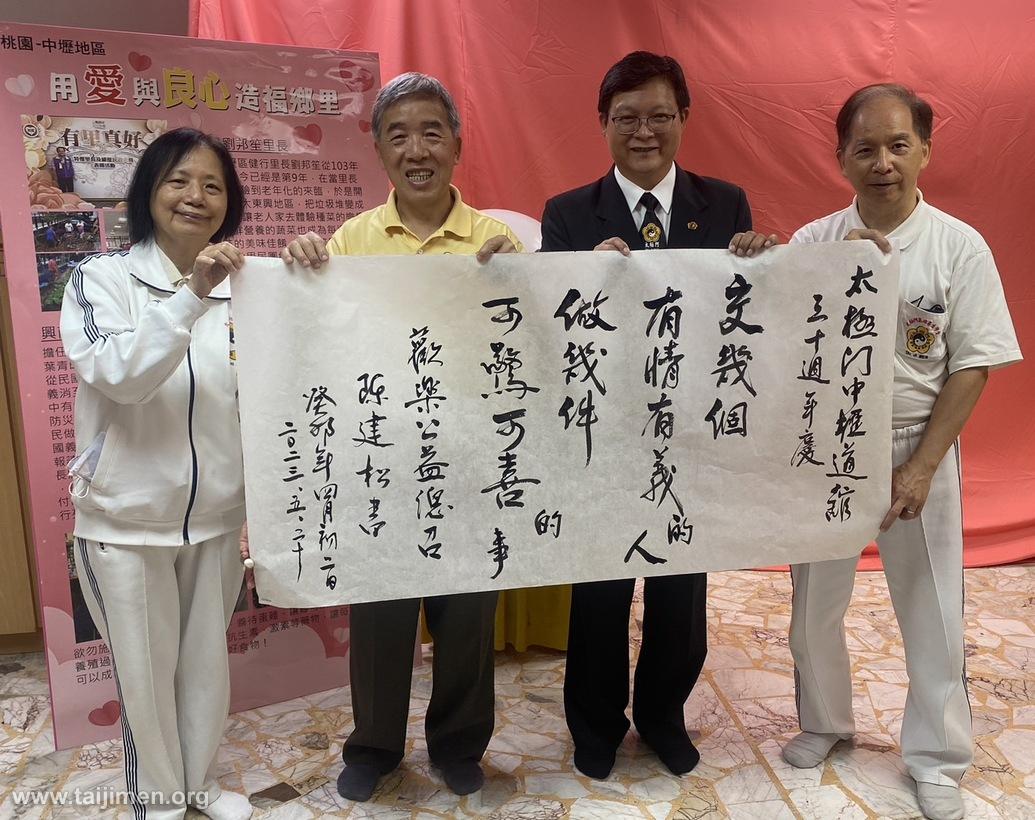 桃園-中壢地區
用愛與良心造福鄉里
有里真好
劉邦笙里長
區健行里長劉邦笙從103年
今已經是第9年，在當里長
驗到老年化的來臨，於是開
大東興地區，把垃圾堆變成
讓老人家去體驗種菜的
營養的蔬菜也成為每
的美味佳餚
太極門中壢道館
三十週年慶
交幾個
有情有義的人
做幾件
可驚可喜的事
歡樂公益總召
陳建松書
癸卯年四月初二日
二〇二三、五、二十
太極門
抗生素、激素等藥物，
好食物！
欲勿施
養殖過
可以成
www.taijimen.org